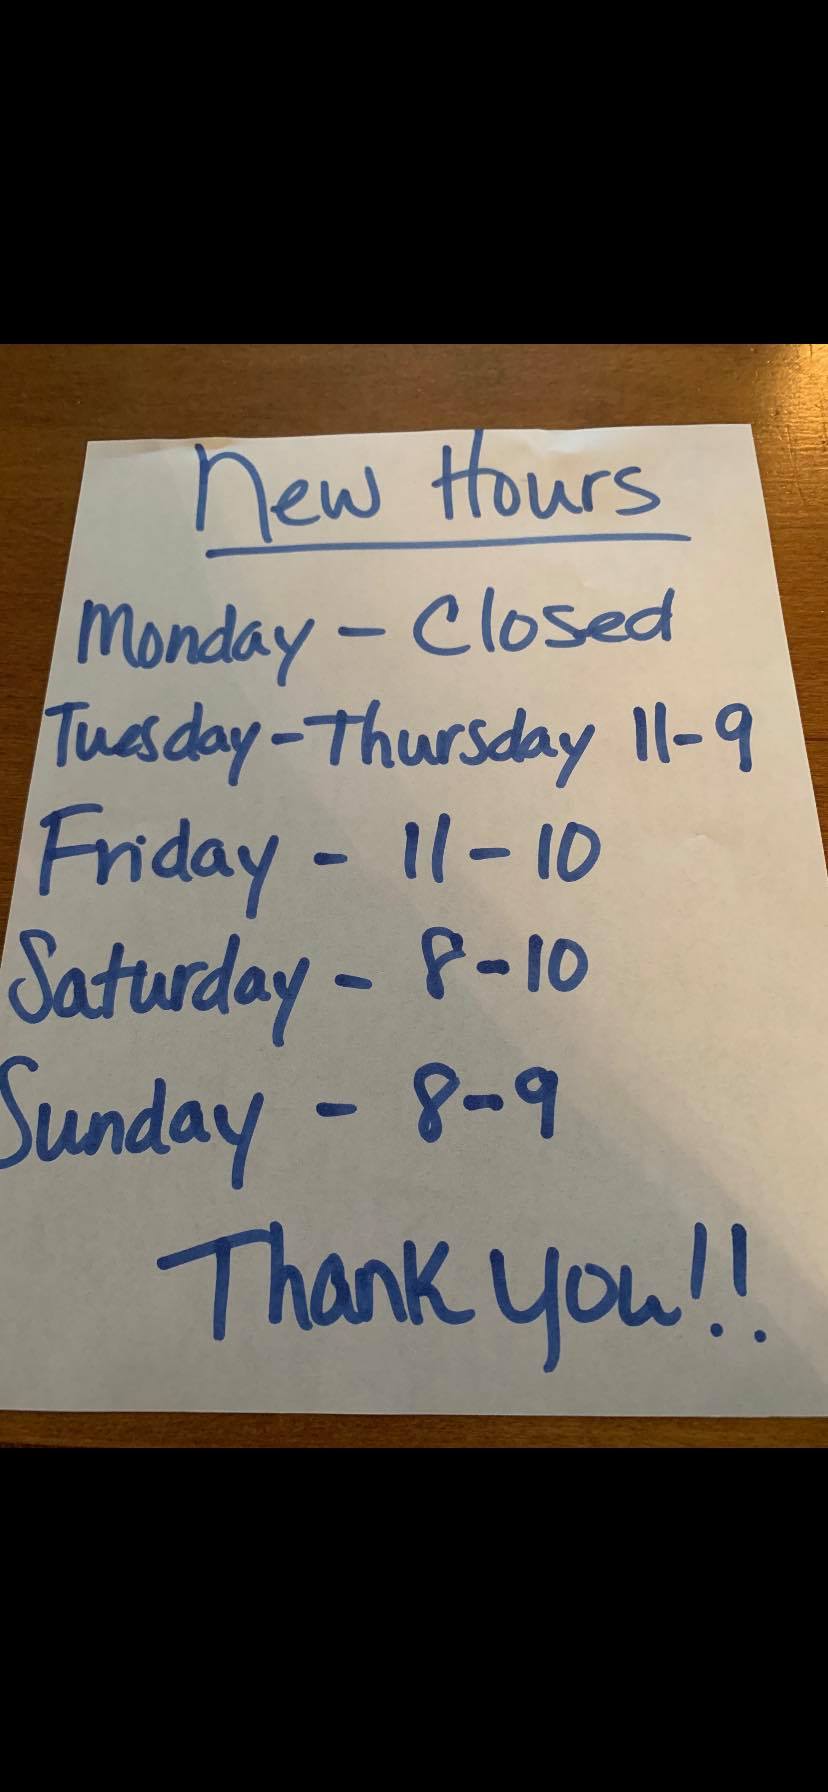 New Hours
Monday - Closed
Tuesday-Thursday 11-9
Friday - 11-10
Saturday - 8-10
Sunday - 8-9
Thank you!!